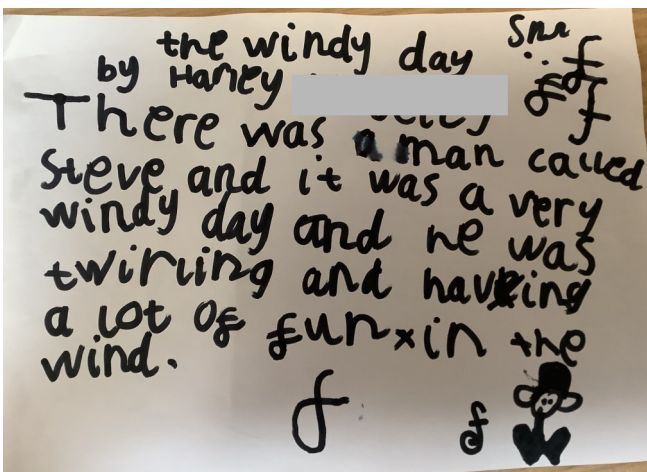 the windy day
by Harvey
There was a man called
Steve and it was a very
windy day and he was
twirling and having
a lot of fun in the
wind.
f
f